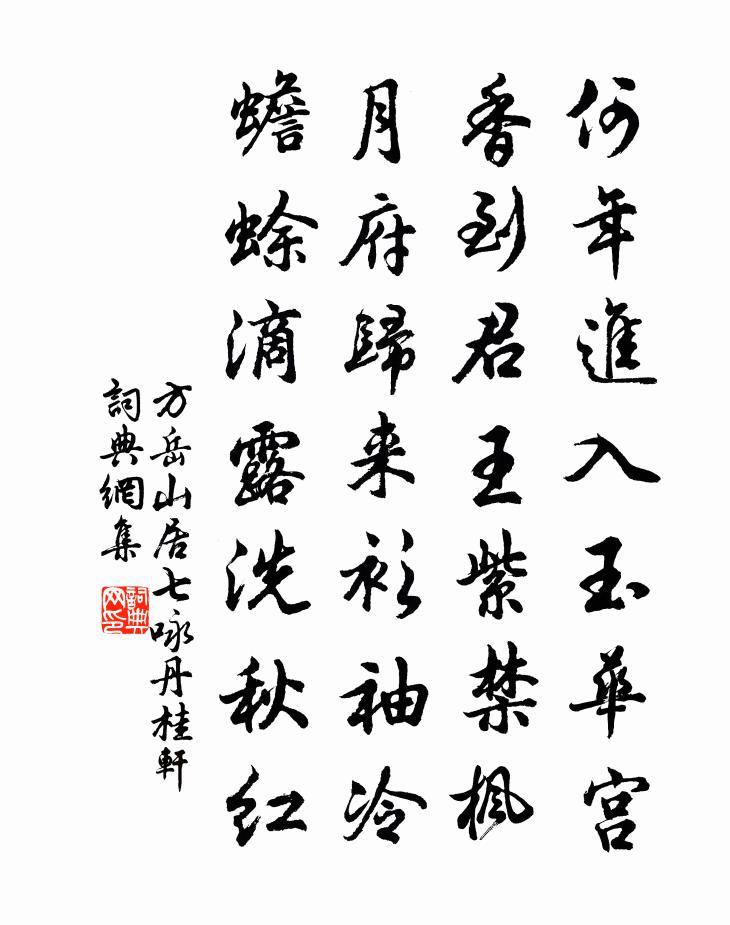 何年進入玉華宮
香到君王紫禁楓
月府歸来衫袖冷
蟾蜍滴露洗秋红
方岳山居七咏丹桂軒
詞典網集
詞典
网印